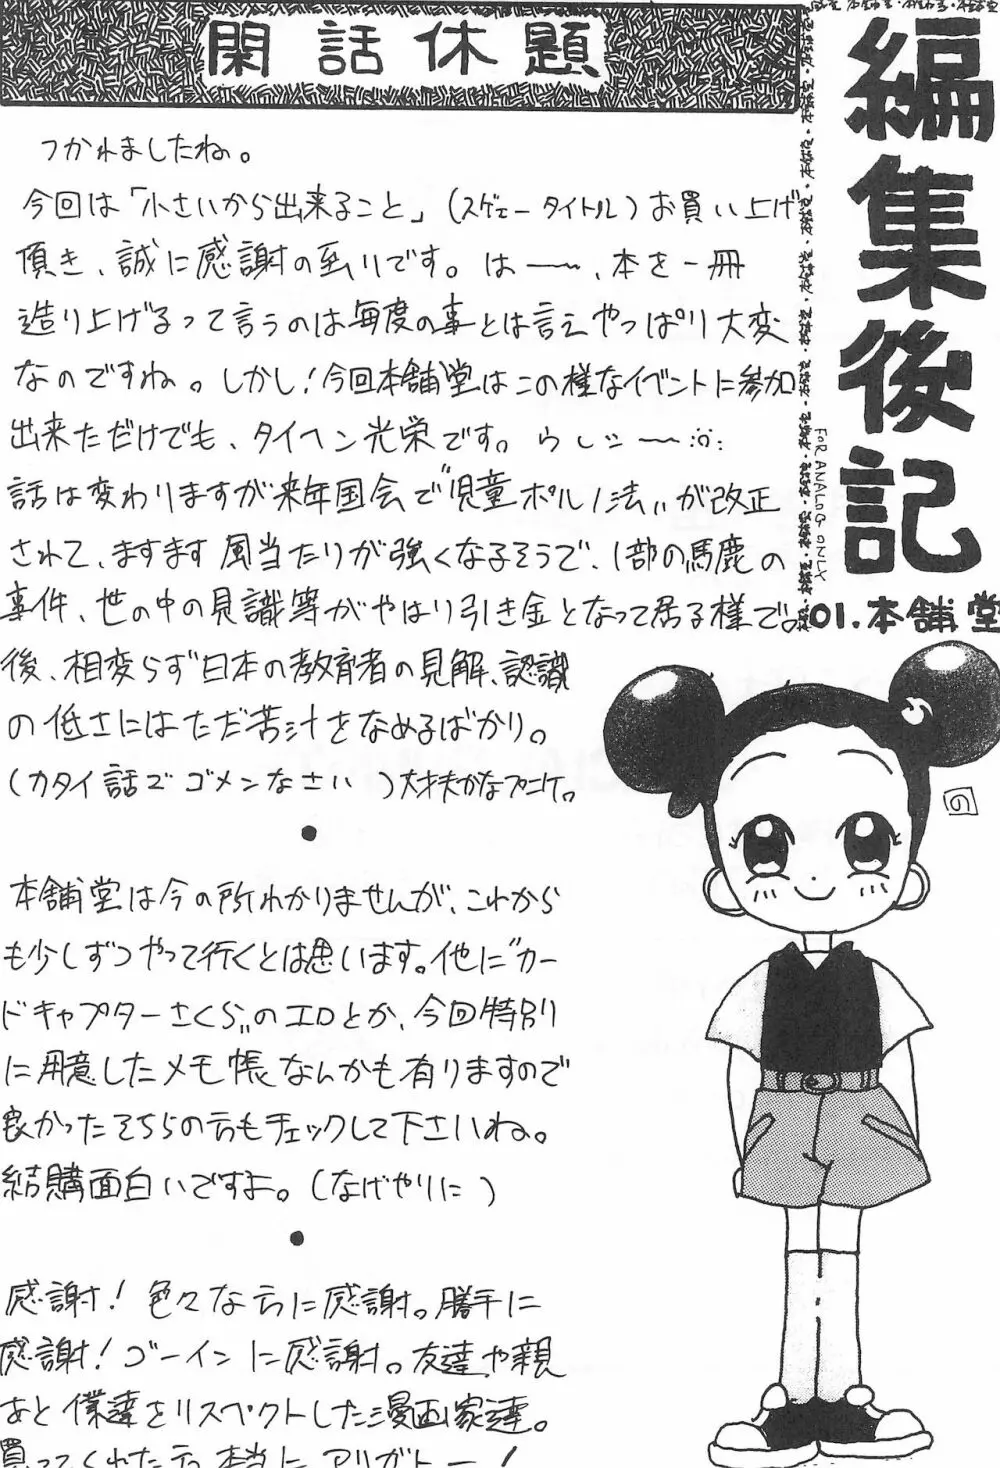 編集後記
FOR ANALOG ONLY
01.本舗堂
閑話休題
つかれましたね。
今回は「小さいから出来ること」(スゲェータイトル)お買い上げ
頂き、誠に感謝の至りです。は〜〜、本を一冊
造り上げるって言うのは毎度の事とは言えやっぱり大変
なのですね。しかし!今回本舗堂はこの様なイベントに参加
出来ただけでも、タイヘン光栄です。うしシ〜〜
話は変わりますが来年国会で"児童ポルノ法"が改正
されて、ますます風当たりが強くなるそうで、1部の馬鹿の
事件、世の中の見識等がやはり引き金となって居る様で。
後、相変らず日本の教育者の見解、認識
の低さにはただ苦汁をなめるばかり。
(カタイ話でゴメンなさい)大丈夫かな
●
本舗堂は今の所わかりませんが、これから
も少しずつやって行くとは思います。他に"カー
ドキャプターさくら"のエロとか、今回特別
に用意したメモ帳なんかも有りますので
良かったそちらの方もチェックして下さいね。
結購面白いですよ。(なげやりに)
●
感謝!色々な方に感謝。勝手に
感謝!ゴーインに感謝。友達や親
あと僕達をリスペクトした漫画家達。
買ってくれた方本当にアリガトー!
の